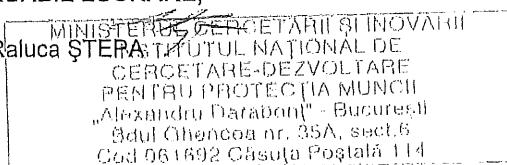 Raluca ȘTEPA
MINISTERUL CERCETĂRII ȘI INOVĂRII
INSTITUTUL NAȚIONAL DE
CERCETARE-DEZVOLTARE
PENTRU PROTECȚIA MUNCII
„Alexandru Darabonț" - București
Bdul Ghencea nr. 35A, sect.6
Cod 061692 Căsuța Poștală 114